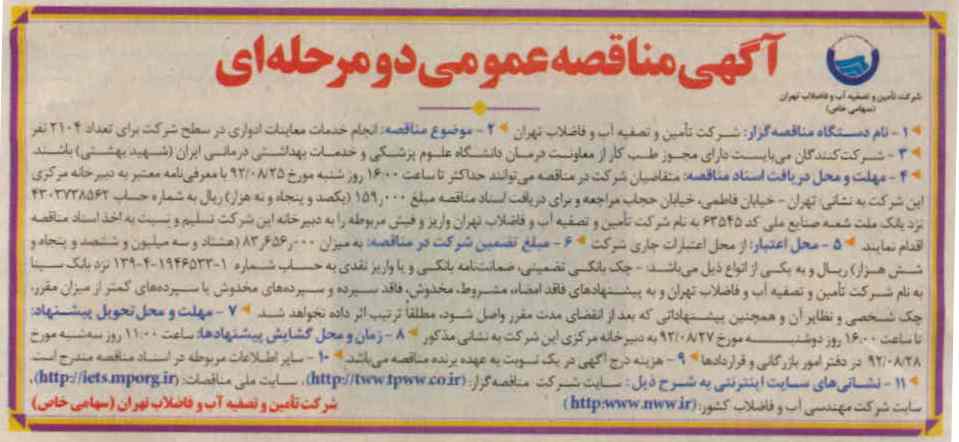 آگهی مناقصه عمومی دو مرحله‌ای
شرکت تأمین و تصفیه آب و فاضلاب تهران
(سهامی خاص)
۱- نام دستگاه مناقصه‌گزار: شرکت تأمین و تصفیه آب و فاضلاب تهران ۲- موضوع مناقصه: انجام خدمات معاینات ادواری در سطح شرکت برای تعداد ۲۱۰۴ نفر
۳- شرکت‌کنندگان می‌بایست دارای مجوز طب کار از معاونت درمان دانشگاه علوم پزشکی و خدمات بهداشتی درمانی ایران (شهید بهشتی) باشند.
۴- مهلت و محل دریافت اسناد مناقصه: متقاضیان شرکت در مناقصه می‌توانند حداکثر تا ساعت ۱۶:۰۰ روز شنبه مورخ ۹۲/۰۸/۲۵ با معرفی‌نامه معتبر به دبیرخانه مرکزی
این شرکت به نشانی: تهران - خیابان فاطمی، خیابان حجاب مراجعه و برای دریافت اسناد مناقصه مبلغ ۱۵۹ر۰۰۰ (یکصد و پنجاه و نه هزار) ریال به شماره حساب ۴۳۰۳۷۳۸۵۶۲
نزد بانک ملت شعبه صنایع ملی کد ۶۳۵۴۵ به نام شرکت تأمین و تصفیه آب و فاضلاب تهران واریز و فیش مربوطه را به دبیرخانه این شرکت تسلیم و نسبت به اخذ اسناد مناقصه
اقدام نمایند. ۵- محل اعتبار: از محل اعتبارات جاری شرکت ۶- مبلغ تضمین شرکت در مناقصه: به میزان ۸۳ر۶۵۶ر۰۰۰ (هشتاد و سه میلیون و ششصد و پنجاه و
شش هزار) ریال و به یکی از انواع ذیل می‌باشد: - چک بانکی تضمینی، ضمانت‌نامه بانکی و یا واریز نقدی به حساب شماره ۱-۱۹۴۶۵۳۳-۴-۱۳۹ نزد بانک سینا
به نام شرکت تأمین و تصفیه آب و فاضلاب تهران و به پیشنهادهای فاقد امضاء، مشروط، مخدوش، فاقد سپرده و سپرده‌های مخدوش یا سپرده‌های کمتر از میزان مقرر،
چک شخصی و نظایر آن و همچنین پیشنهاداتی که بعد از انقضای مدت مقرر واصل شود، مطلقاً ترتیب اثر داده نخواهد شد. ۷- مهلت و محل تحویل پیشنهاد:
تا ساعت ۱۶:۰۰ روز دوشنبه مورخ ۹۲/۰۸/۲۷ به دبیرخانه مرکزی این شرکت به نشانی مذکور ۸- زمان و محل گشایش پیشنهادها: ساعت ۱۱:۰۰ روز سه‌شنبه مورخ
۹۲/۰۸/۲۸ در دفتر امور بازرگانی و قراردادها ۹- هزینه درج آگهی در یک نوبت به عهده برنده مناقصه می‌باشد. ۱۰- سایر اطلاعات مربوطه در اسناد مناقصه مندرج است.
۱۱- نشانی‌های سایت اینترنتی به شرح ذیل: سایت شرکت مناقصه‌گزار: (http://tww.tpww.co.ir)، سایت ملی مناقصات: (http://iets.mporg.ir)،
سایت شرکت مهندسی آب و فاضلاب کشور: (http:www.nww.ir)
شرکت تأمین و تصفیه آب و فاضلاب تهران (سهامی خاص)